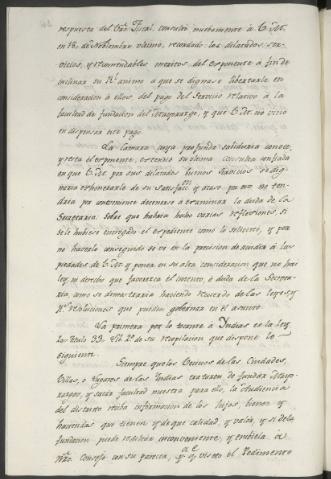 respuesta del Sõr Fiscal, consultó nuebamente à V. M.
en 18 de Septiembre ultimo, recordando los dilatados ser-
vicios, y recomendables meritos del exponente à fin de
inclinar su Rl. animo a que se dignase libertarle en
consideracion à ellos del pago del servicio relativo à la
facultad de fundacion del Mayorazgo, y que V. M. no vino
en dispensar este pago.
La Camara cuya profunda sabiduria conoce,
y respeta el exponente, extendió su ultima consulta confiada
en que V. M. por sus dilatados buenos servicios se dig-
naria exhonerarle de su satisfaⁿ. y acaso por eso no ten-
dria por combeniente detenerse à examinar la duda de la
Secretaria sobre que hubiera hecho varias reflexiones, si
se le hubiese entregado el expediente como lo solicitó, y por
no haverlo conseguido se ve en la precision de acudir à los
pies de V. M. y poner en su alta consideracion que no hai
ley, ni derecho que favorezca el intento, ó duda de la Secreta-
ria, como se demostrará haciendo recuerdo de las leyes y
Rs. resoluciones que pueden governar en el asunto.
La primera por lo tocante à Indias es la Ley
20, titulo 33, Lib. 2º de su recopilacion que dispone lo
siguiente.
Siempre que los Vecinos de las Ciudades,
Villas, y Lugares de las Indias trataren de fundar Mayo-
razgos, y sacar facultad nuestra para ello, la Audiencia
del distrito reciba informacion de los hijos, bienes y
haciendas que tienen y de que calidad, y valor, y si de la
fundacion puede resultar inconveniente, y embiela à
nr̃o. Consejo con su parecer, y visto el Pedimento